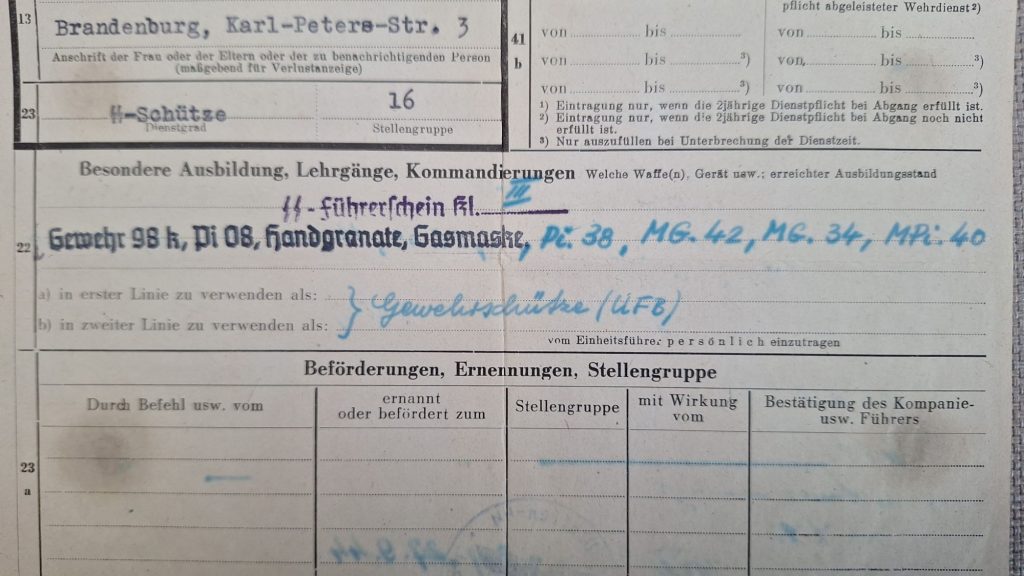 13
Brandenburg, Karl-Peters-Str. 3
Anschrift der Frau oder der Eltern oder der zu benachrichtigenden Person
(maßgebend für Verlustanzeige)
23
ᛋᛋ-Schütze
Dienstgrad
16
Stellengruppe
pflicht abgeleisteter Wehrdienst²)
41
b
von bis von bis
von bis ³) von bis ³)
von bis ³) von bis ³)
¹) Eintragung nur, wenn die 2jährige Dienstpflicht bei Abgang erfüllt ist.
²) Eintragung nur, wenn die 2jährige Dienstpflicht bei Abgang noch nicht
erfüllt ist.
³) Nur auszufüllen bei Unterbrechung der Dienstzeit.
Besondere Ausbildung, Lehrgänge, Kommandierungen Welche Waffe(n), Gerät usw.; erreichter Ausbildungsstand
ᛋᛋ-Führerschein Kl. III
22
Gewehr 98 k, Pi 08, Handgranate, Gasmaske, Pi. 38, MG. 42, MG. 34, MPi. 40
a) in erster Linie zu verwenden als:
b) in zweiter Linie zu verwenden als:
} Gewehrschütze (UFB)
vom Einheitsführer persönlich einzutragen
Beförderungen, Ernennungen, Stellengruppe
Durch Befehl usw. vom
ernannt
oder befördert zum
Stellengruppe
mit Wirkung
vom
Bestätigung des Kompanie-
usw. Führers
23
a